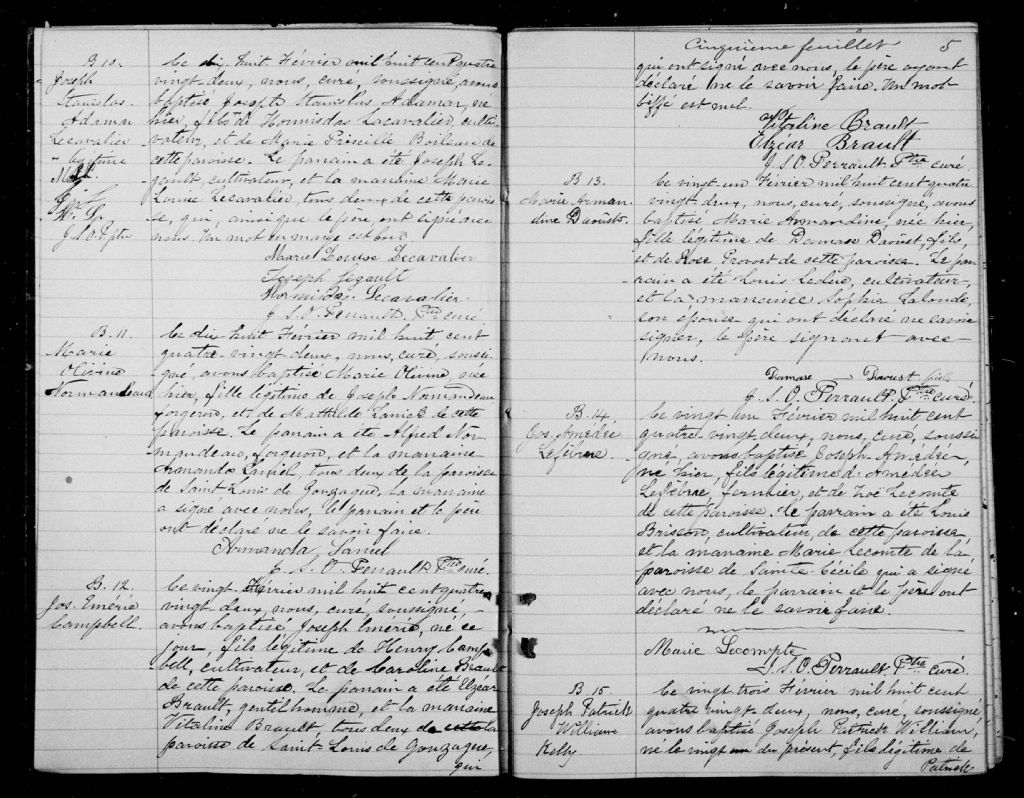 B 10.
Joseph
Stanislas
Adamar
Lecavalier
Le dix huit Février mil huit cent quatre
vingt-deux, nous, curé, soussigné, avons
baptisé Joseph Stanislas Adamar, né
hier, fils de Hormisdas Lecavalier, culti-
vateur, et de Marie Priscille Boileau de
cette paroisse. Le parrain a été Joseph Le-
gault, cultivateur, et la marraine Marie
Louise Lecavalier, tous deux de cette parois-
se, qui, ainsi que le père ont signé avec
nous. Un mot en marge est bon
Marie Louise Lecavalier
Joseph Legault
Hormisdas Lecavalier
J. S. O. Perrault, Ptre curé
B. 11.
Marie
Olivine
Normandeau
Le dix huit Février mil huit cent
quatre-vingt deux, nous, curé, soussi-
gné, avons baptisé Marie Olivine née
hier, fille légitime de Joseph Normandeau
forgeron, et de Mathilde Laniel de cette
paroisse. Le parrain a été Alfred Nor-
mandeau, forgeron, et la marraine
Armanda Laniel, tous deux de la paroisse
de Saint Louis de Gonzague, la marraine
a signé avec nous, le parrain et le père
ont déclaré ne le savoir faire.
Armanda Laniel
J. S. O. Perrault Ptre curé.
B. 12.
Jos. Émérie
Campbell.
Le vingt Février mil huit cent quatre
vingt deux, nous, curé, soussigné,
avons baptisé Joseph Émérie, né ce
jour, fils légitime de Henry Camp-
bell, cultivateur, et de Caroline Brault
de cette paroisse. Le parrain a été Elzéar
Brault, gentilhomme, et la marraine
Vitaline Brault, tous deux de la
paroisse de Saint Louis de Gonzague,
qui
Cinquième feuillet 5
qui ont signé avec nous, le père ayant
déclaré ne le savoir faire. Un mot
biffé est nul.
Vitaline Brault
Elzéar Brault
J. S. O. Perrault Ptre curé
B 13.
Marie Arman-
dine Daoust.
Le vingt un Février mil huit cent quatre
vingt deux, nous, curé, soussigné, avons
baptisé Marie Armandine, née hier,
fille légitime de Damase Daoust, fils,
et de Rose Provost de cette paroisse. Le par-
rain a été Louis Leduc, cultivateur,
et la marraine Sophie Lalonde,
son épouse qui ont déclaré ne savoir
signer, le père signant avec
nous.
Damase Daoust fils
J. S. O. Perrault, Ptre curé.
B. 14
Jos. Amédée
Lefebvre
Le vingt un Février mil huit cent
quatre vingt deux, nous, curé, soussi-
gné, avons baptisé Joseph Amédée,
né hier, fils légitime d'Amédée
Lefebvre, fermier, et de Zoé Lecomte
de cette paroisse. Le parrain a été Louis
Brisson, cultivateur, de cette paroisse
et la marraine Marie Lecomte de la
paroisse de Sainte Cécile qui a signé
avec nous, le parrain et le père ont
déclaré ne le savoir faire
Marie Lecompte
J. S. O. Perrault, Ptre curé.
B 15.
Joseph Patrick
William
Kelly
Le vingt trois Février mil huit cent
quatre vingt deux, nous, curé, soussigné
avons baptisé Joseph Patrick William,
né le vingt un du présent, fils légitime de
Patrick